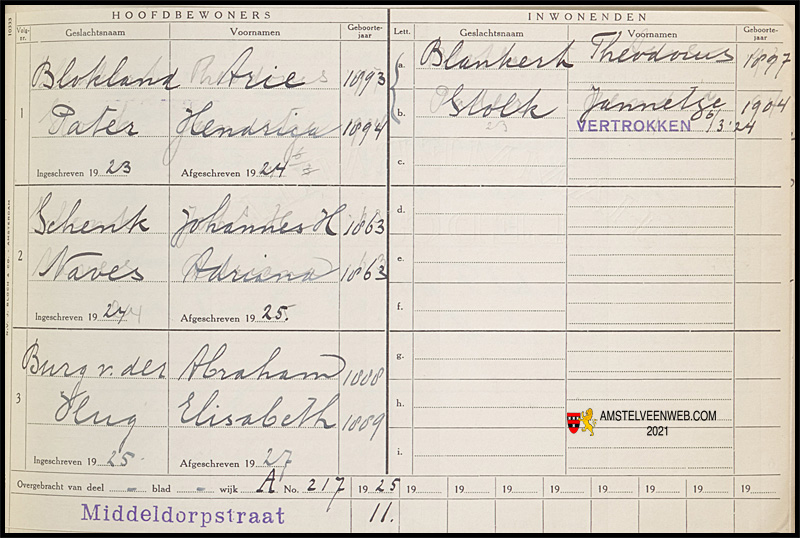 HOOFDBEWONERS
INWONENDEN
Volg-nr.
Geslachtsnaam
Voornamen
Geboorte-jaar
Lett.
Geslachtsnaam
Voornamen
Geboorte-jaar
1
Blokland Arie 1893
Pater Hendrika 1894
Ingeschreven 19 23 Afgeschreven 19 24
a. Blankert Theodorus 1897
b. Stolk Jannetje 1904
VERTROKKEN 6/3'24
c.
2
Schenk Johannes H 1863
Naves Adriana 1863
Ingeschreven 19 24 Afgeschreven 19 25.
d.
e.
f.
3
Burg v. der Abraham 1888
Hug Elisabeth 1889
Ingeschreven 19 25 Afgeschreven 19 27
g.
h.
i.
AMSTELVEENWEB.COM
2021
Overgebracht van deel - blad - wijk A No. 217 19 25 19 19 19 19 19 19 19 19
Middeldorpstraat 11.